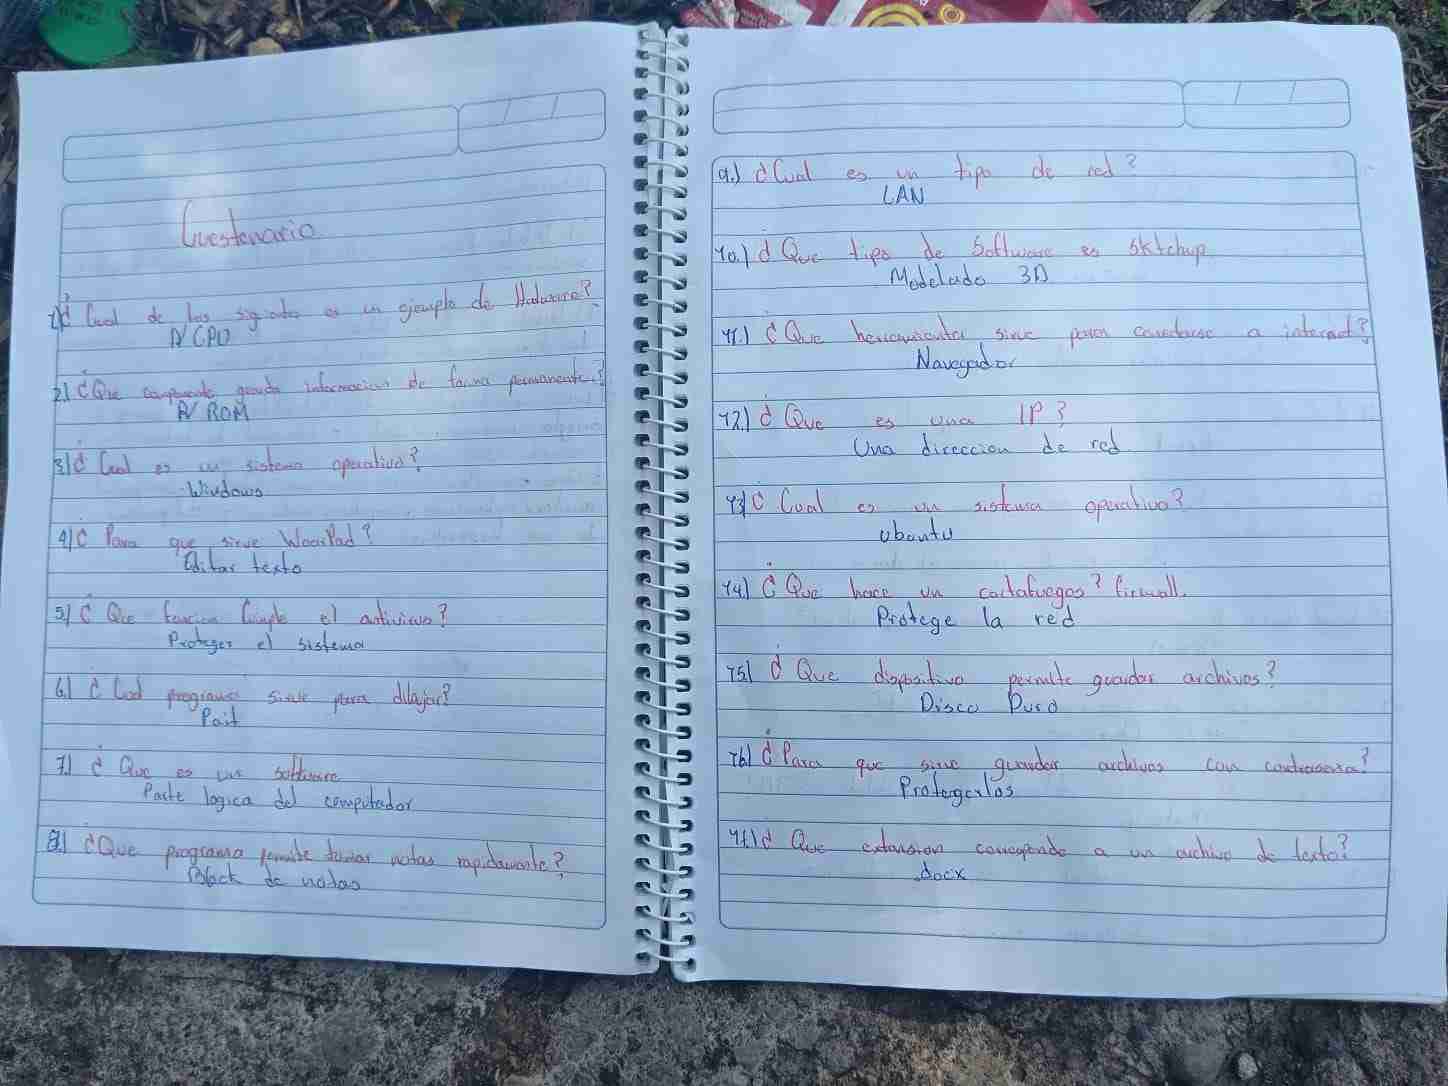 Cuestenario
1) ¿Cual de los siguientes es un ejemplo de Hadware?
R/ CPU
2) ¿Que componente guarda informacion de forma permanente?
R/ ROM
3) ¿Cual es un sistema operativo?
Windows
4) ¿Para que sirve WoorPad?
Editar texto
5) ¿Que funcion Cumple el antivirus?
Proteger el sistema
6.) ¿Cual programa sirve para dibujar?
Pait
7.) ¿Que es un software
Parte logica del computador
8.) ¿Que programa permite tomar notas rapidamente?
Block de notas
9.) ¿Cual es un tipo de red?
LAN
10.) ¿Que tipo de Software es sktchup
Modelado 3D
11.) ¿Que herramienta sirve para conectarse a internet?
Navegador
12.) ¿Que es una IP?
Una direccion de red
13) ¿Cual es un sistema operativo?
Ubantu
14.) ¿Que hace un cortafuegos? firwall.
Protege la red
15) ¿Que dispositivo permite guardar archivos?
Disco Duro
16) ¿Para que sirve guardar archivos con contrasena?
Protegerlos
17.) ¿Que extansion corresponde a un archivo de texto?
.docx